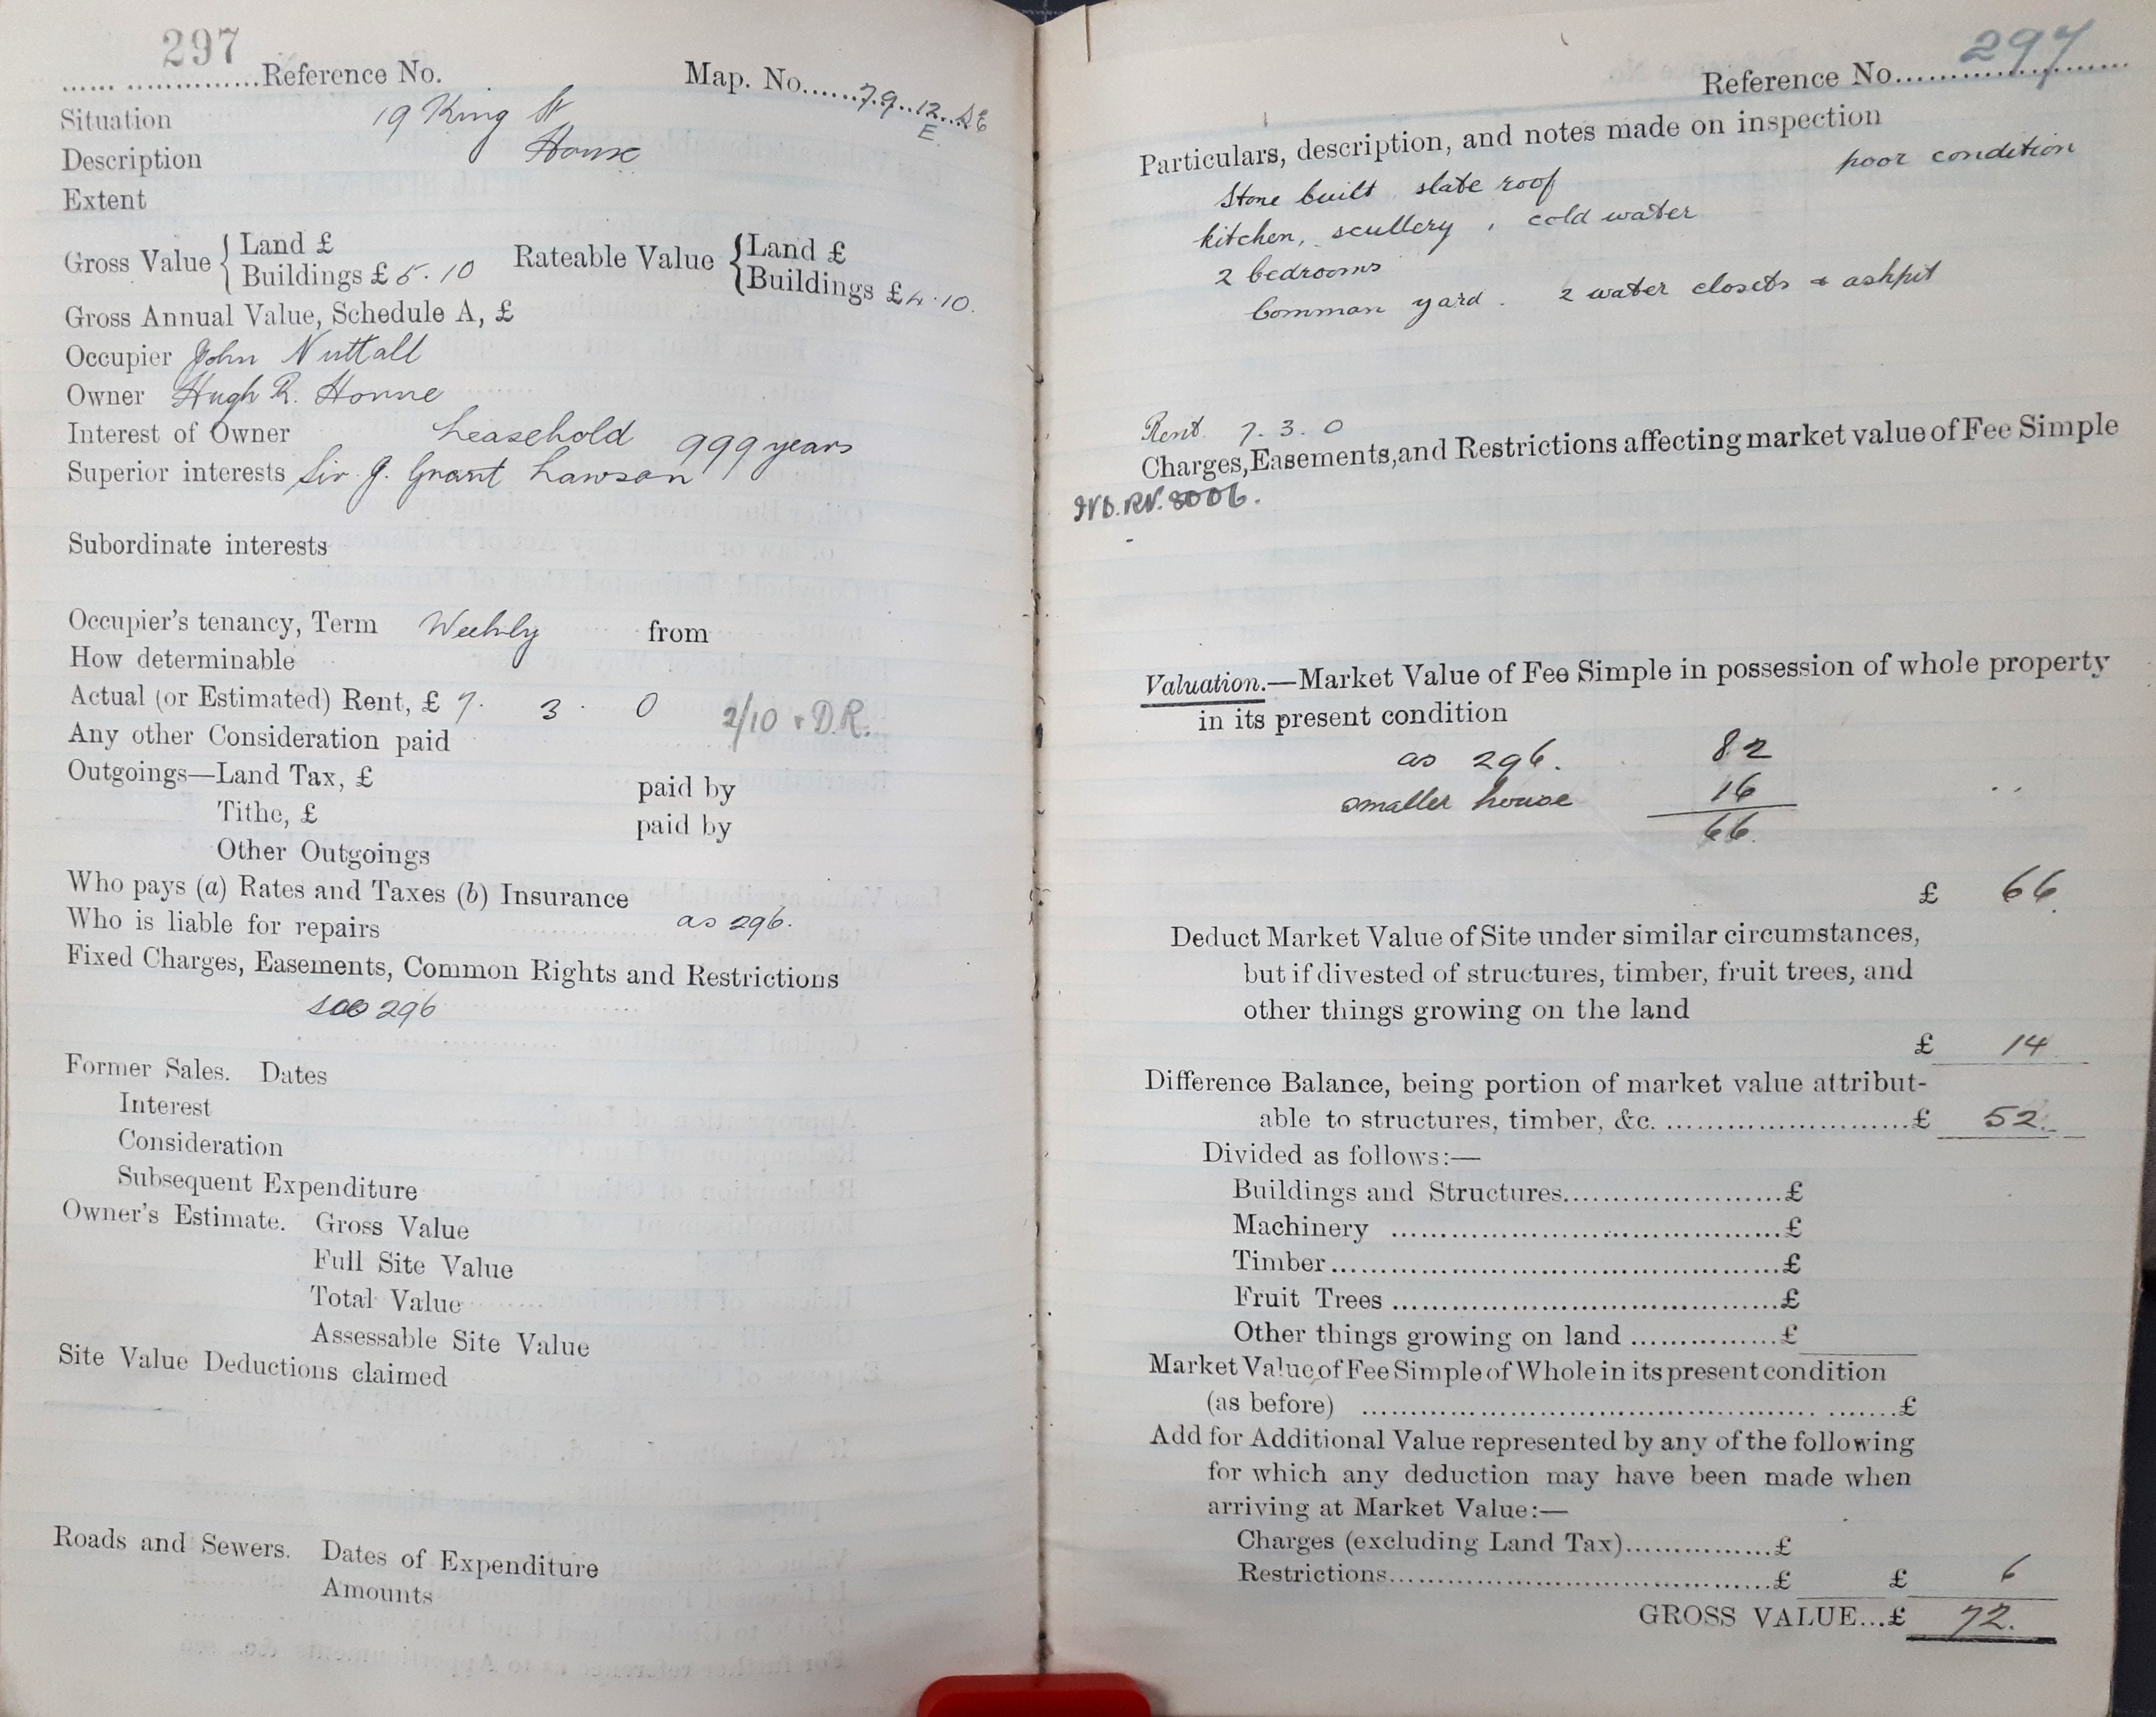 297
...... ...............Reference No. Map. No......79..12...SE
E
Situation 19 King St
Description House
Extent
Gross Value { Land £ Rateable Value { Land £
Buildings £ 5.10 Buildings £ 4.10.
Gross Annual Value, Schedule A, £
Occupier John Nuttall
Owner Hugh R. Horne
Interest of Owner Leasehold 999 years
Superior interests Sir J. Grant Lawson
Subordinate interests
Occupier's tenancy, Term Weekly from
How determinable
Actual (or Estimated) Rent, £ 7. 3. 0 2/10 + D.R.
Any other Consideration paid
Outgoings—Land Tax, £ paid by
Tithe, £ paid by
Other Outgoings
Who pays (a) Rates and Taxes (b) Insurance
Who is liable for repairs as 296.
Fixed Charges, Easements, Common Rights and Restrictions
see 296
Former Sales. Dates
Interest
Consideration
Subsequent Expenditure
Owner's Estimate. Gross Value
Full Site Value
Total Value
Assessable Site Value
Site Value Deductions claimed
Roads and Sewers. Dates of Expenditure
Amounts
Reference No. 297
Particulars, description, and notes made on inspection
poor condition
Stone built, slate roof
kitchen, scullery, cold water
2 bedrooms
Common yard. 2 water closets & ashpit
Rent. 7. 3. 0
Charges, Easements, and Restrictions affecting market value of Fee Simple
8006.
Valuation.—Market Value of Fee Simple in possession of whole property
in its present condition
as 296. 82
smaller house 16
66.
£ 66.
Deduct Market Value of Site under similar circumstances,
but if divested of structures, timber, fruit trees, and
other things growing on the land
£ 14
Difference Balance, being portion of market value attribut-
able to structures, timber, &c. ...........................£ 52.
Divided as follows:—
Buildings and Structures........................£
Machinery ...........................................£
Timber..................................................£
Fruit Trees ...........................................£
Other things growing on land ................£
Market Value of Fee Simple of Whole in its present condition
(as before) ....................................................... .......£
Add for Additional Value represented by any of the following
for which any deduction may have been made when
arriving at Market Value:—
Charges (excluding Land Tax)................£
Restrictions...........................................£ £ 6
GROSS VALUE...£ 72.